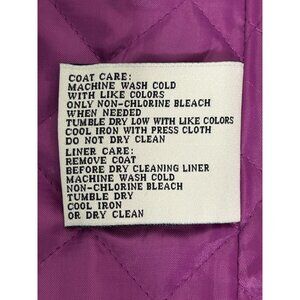 COAT CARE:
MACHINE WASH COLD
WITH LIKE COLORS
ONLY NON-CHLORINE BLEACH
WHEN NEEDED
TUMBLE DRY LOW WITH LIKE COLORS
COOL IRON WITH PRESS CLOTH
DO NOT DRY CLEAN
LINER CARE:
REMOVE COAT
BEFORE DRY CLEANING LINER
MACHINE WASH COLD
NON-CHLORINE BLEACH
TUMBLE DRY
COOL IRON
OR DRY CLEAN